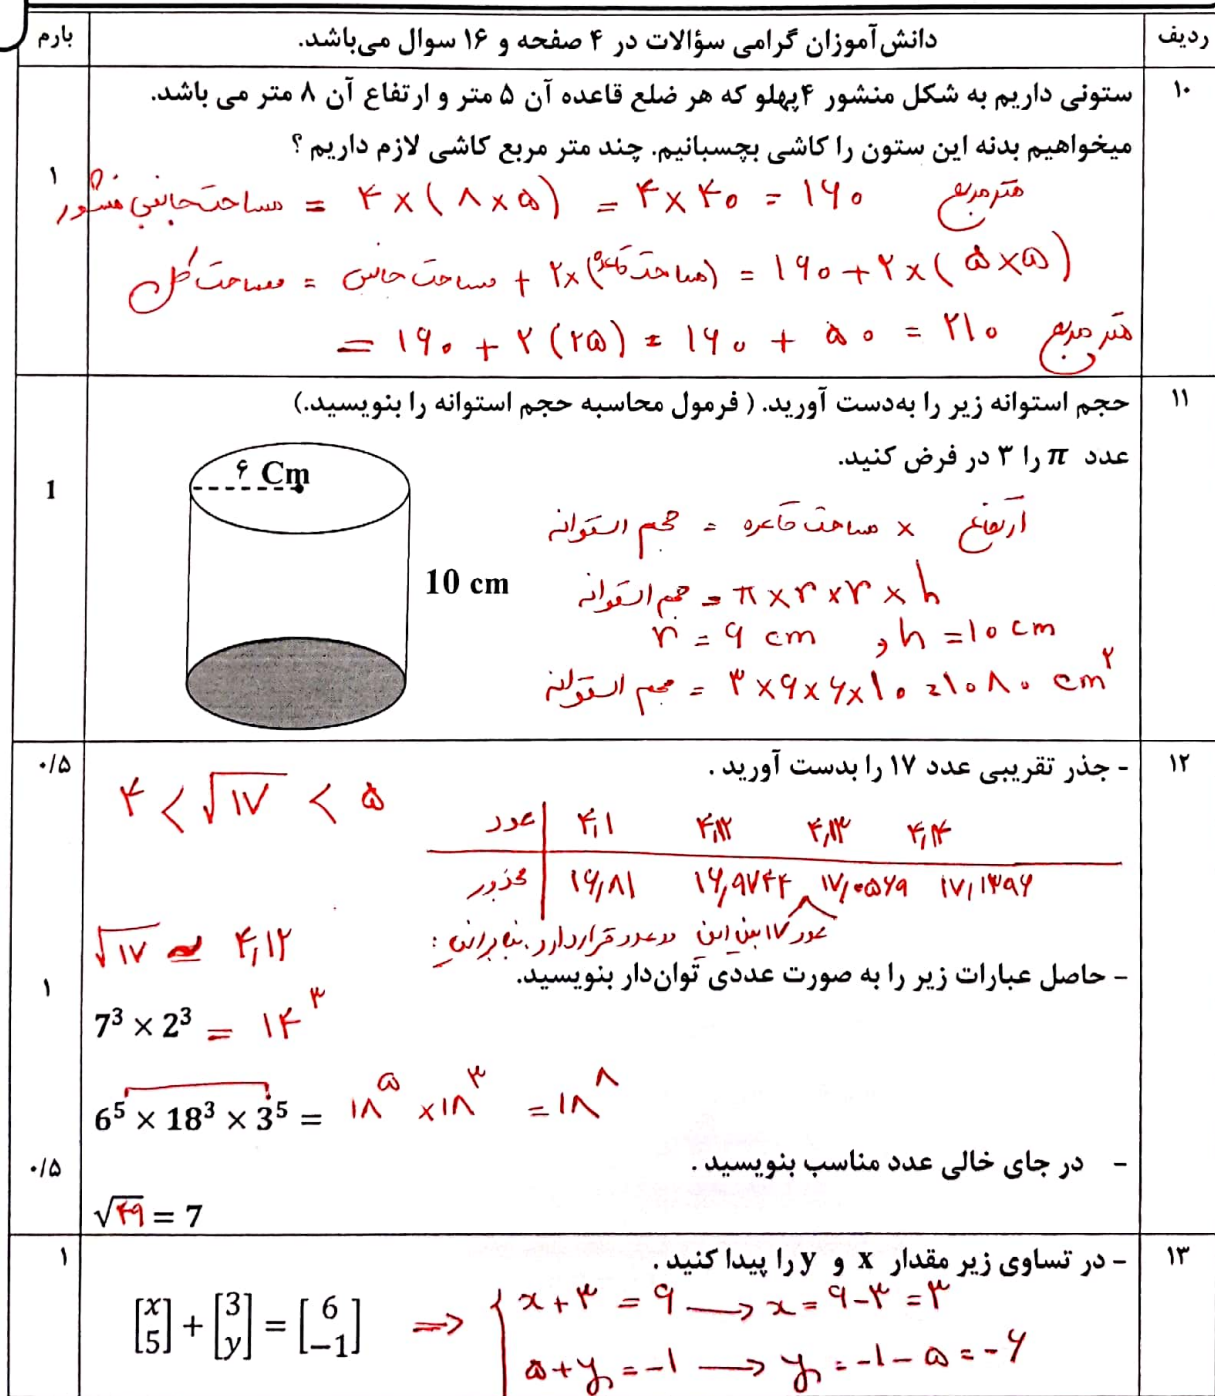 ردیف دانش‌آموزان گرامی سؤالات در ۴ صفحه و ۱۶ سوال می‌باشد. بارم
۱۰ ستونی داریم به شکل منشور ۴پهلو که هر ضلع قاعده آن ۵ متر و ارتفاع آن ۸ متر می باشد.
میخواهیم بدنه این ستون را کاشی بچسبانیم. چند متر مربع کاشی لازم داریم ؟
۱
مساحت جانبی منشور = ۴ × (۸ × ۵) = ۴ × ۴۰ = ۱۶۰ متر مربع
مساحت کل = مساحت جانبی + ۲×(مساحت قاعده) = ۱۶۰ + ۲ × (۵×۵)
= ۱۶۰ + ۲ (۲۵) = ۱۶۰ + ۵۰ = ۲۱۰ متر مربع
۱۱ حجم استوانه زیر را به‌دست آورید. ( فرمول محاسبه حجم استوانه را بنویسید.)
عدد π را ۳ در فرض کنید.
1
۶ Cm
10 cm
حجم استوانه = مساحت قاعده × ارتفاع
حجم استوانه = π × r × r × h
r = ۶ cm و h = ۱۰ cm
حجم استوانه = ۳ × ۶ × ۶ × ۱۰ = ۱۰۸۰ cm²
۱۲ - جذر تقریبی عدد ۱۷ را بدست آورید . ۰/۵
۴ < √۱۷ < ۵
عدد ۴٫۱ ۴٫۱۲ ۴٫۱۳ ۴٫۱۴
مجذور ۱۶٫۸۱ ۱۶٫۹۷۴۴ ۱۷٫۰۵۶۹ ۱۷٫۱۳۹۶
عدد ۱۷ بین این دو عدد قرار دارد. بنابراین :
√۱۷ ≃ ۴٫۱۲
- حاصل عبارات زیر را به صورت عددی توان‌دار بنویسید. ۱
7³ × 2³ = ۱۴³
6⁵ × 18³ × 3⁵ = ۱۸⁵ × ۱۸³ = ۱۸⁸
- در جای خالی عدد مناسب بنویسید . ۰/۵
√۴۹ = 7
۱۳ - در تساوی زیر مقدار x و y را پیدا کنید . ۱
[x 5] + [3 y] = [6 −1] ⇒
x + ۳ = ۶ → x = ۶ - ۳ = ۳
۵ + y = -۱ → y = -۱ - ۵ = -۶